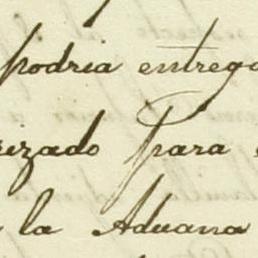 podria entrega
rizado para
la Aduana